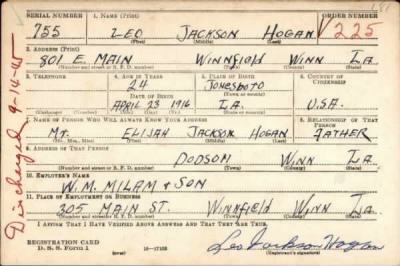 181
SERIAL NUMBER 1. NAME (Print) ORDER NUMBER
755 LEO JACKSON HOGAN V225
(First) (Middle) (Last)
2. ADDRESS (Print)
801 E. MAIN WINNFIELD WINN LA.
(Number and street or R. F. D. number) (Town) (County) (State)
3. TELEPHONE 4. AGE IN YEARS 5. PLACE OF BIRTH 6. COUNTRY OF CITIZENSHIP
24 JONESBORO
DATE OF BIRTH (Town or county)
APRIL 23 1916 LA. U.S.A.
(Exchange) (Number) (Mo.) (Day) (Yr.) (State or country)
7. NAME OF PERSON WHO WILL ALWAYS KNOW YOUR ADDRESS 8. RELATIONSHIP OF THAT PERSON
MR. ELIJAH JACKSON HOGAN FATHER
(Mr., Mrs., Miss) (First) (Middle) (Last)
9. ADDRESS OF THAT PERSON
DODSON WINN LA.
(Number and street or R. F. D. number) (Town) (County) (State)
10. EMPLOYER'S NAME
W. M. MILAM & SON
11. PLACE OF EMPLOYMENT OR BUSINESS
305 MAIN ST. WINNFIELD WINN LA.
(Number and street or R. F. D. number) (Town) (County) (State)
I AFFIRM THAT I HAVE VERIFIED ABOVE ANSWERS AND THAT THEY ARE TRUE.
REGISTRATION CARD
D. S. S. Form 1 (over) 16—17105 Leo Jackson Hogan
(Registrant's signature)
Discharged 9-14-45